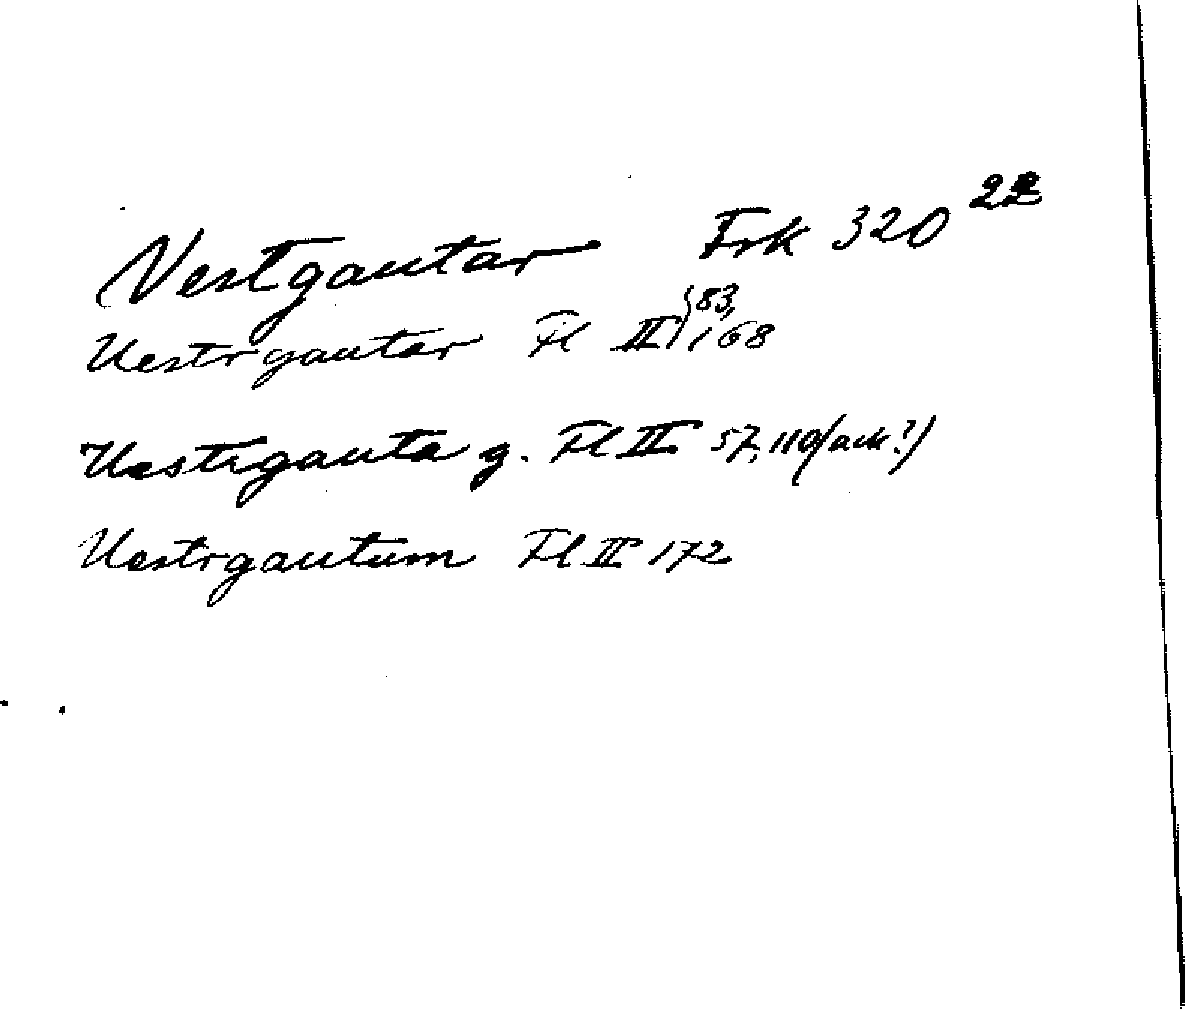 Vestgautar Frk 320 22
Uestrgautar Fl II 83, 168
Uestrgauta g. Fl II 57, 110 (ack?)
Uestrgautum Fl II 172